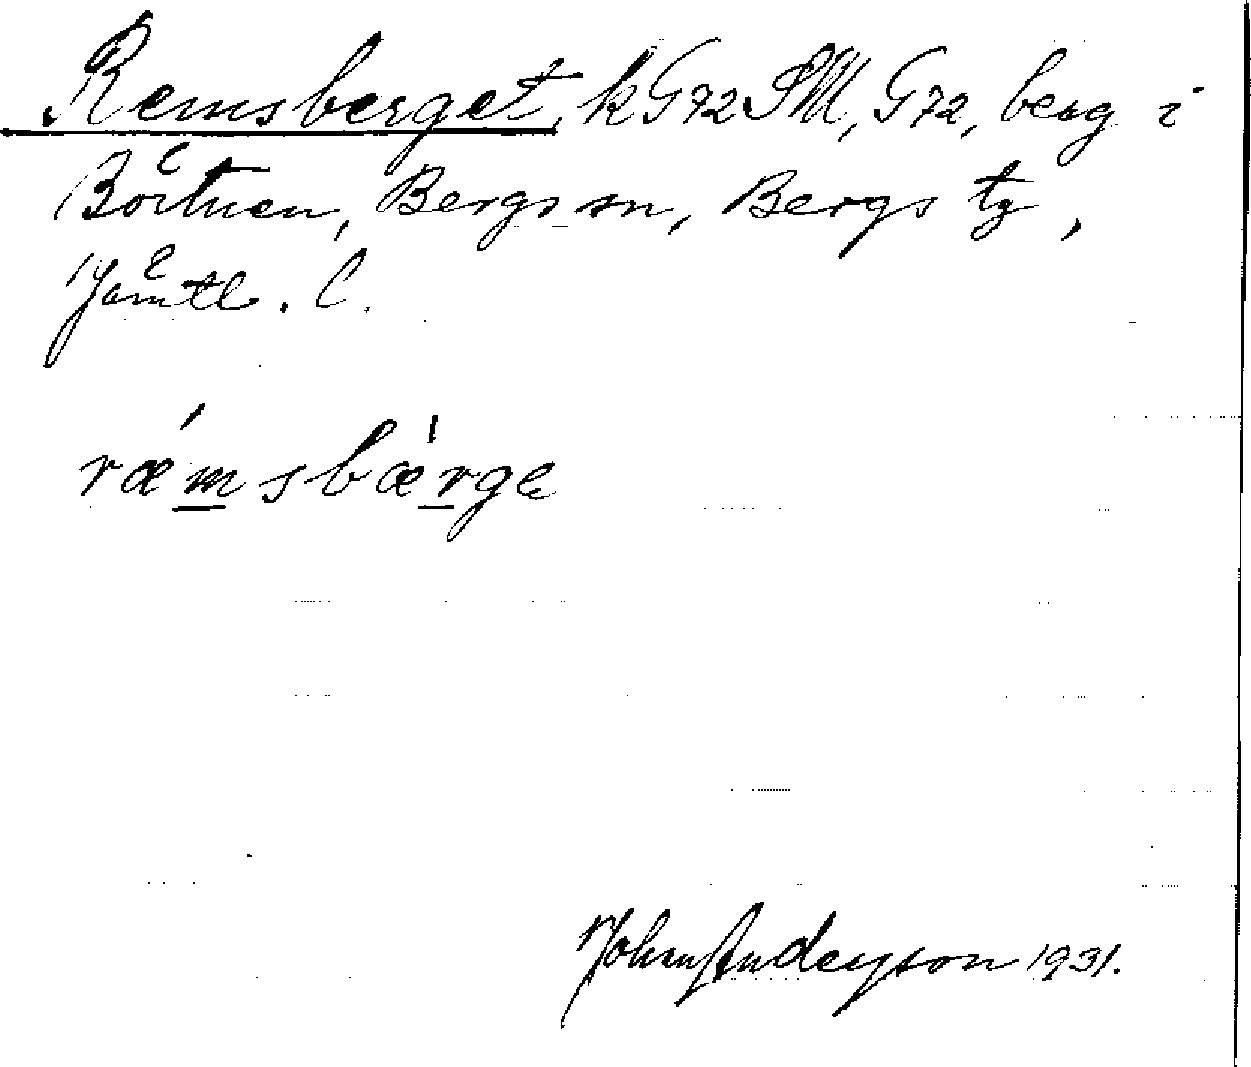 Remsberget, k G72 SM, G72, berg i
Börtnen, Bergs sn, Bergs tg,
Jämtl. l.
ræ´msbæ'rge
Johan Anderson 1931.